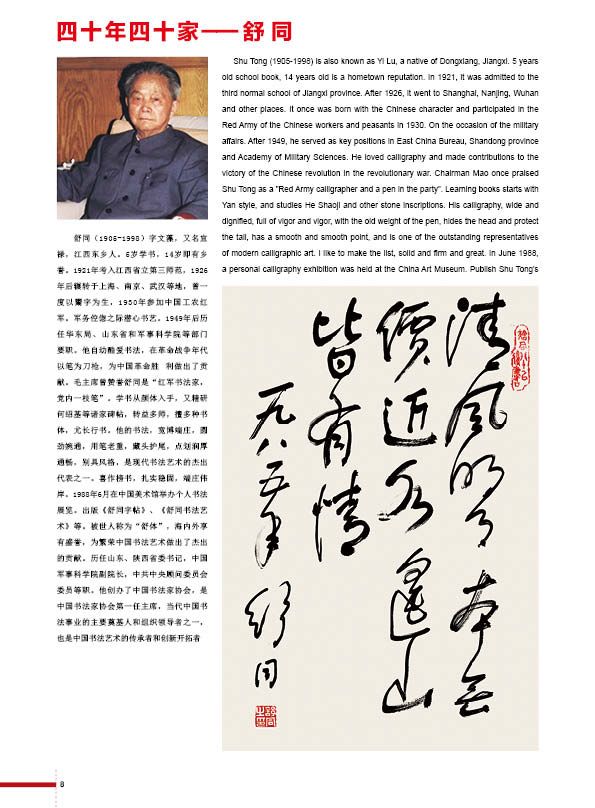 四十年四十家——舒同
Shu Tong (1905-1998) is also known as Yi Lu, a native of Dongxiang, Jiangxi. 5 years
old school book, 14 years old is a hometown reputation. In 1921, it was admitted to the
third normal school of Jiangxi province. After 1926, it went to Shanghai, Nanjing, Wuhan
and other places. It once was born with the Chinese character and participated in the
Red Army of the Chinese workers and peasants in 1930. On the occasion of the military
affairs. After 1949, he served as key positions in East China Bureau, Shandong province
and Academy of Military Sciences. He loved calligraphy and made contributions to the
victory of the Chinese revolution in the revolutionary war. Chairman Mao once praised
Shu Tong as a "Red Army calligrapher and a pen in the party". Learning books starts with
Yan style, and studies He Shaoji and other stone inscriptions. His calligraphy, wide and
dignified, full of vigor and vigor, with the old weight of the pen, hides the head and protect
the tail, has a smooth and smooth point, and is one of the outstanding representatives
of modern calligraphic art. I like to make the list, solid and firm and great. In June 1988,
a personal calligraphy exhibition was held at the China Art Museum. Publish Shu Tong's
舒同（1905-1998）字文藻，又名宜
禄，江西东乡人。5岁学书，14岁即有乡
誉。1921年考入江西省立第三师范，1926
年后辗转于上海、南京、武汉等地，曾一
度以鬻字为生，1930年参加中国工农红
军，军务倥偬之际潜心书艺。1949年后历
任华东局、山东省和军事科学院等部门
要职。他自幼酷爱书法，在革命战争年代
以笔为刀枪，为中国革命胜 利做出了贡
献。毛主席曾赞誉舒同是“红军书法家，
党内一枝笔”。学书从颜体入手，又精研
何绍基等诸家碑帖，转益多师，擅多种书
体，尤长行书。他的书法，宽博端庄，圆
劲婉通，用笔老重，藏头护尾，点划润厚
通畅，别具风格，是现代书法艺术的杰出
代表之一。喜作榜书，扎实稳固，端庄伟
岸。1988年6月在中国美术馆举办个人书法
展览。出版《舒同字帖》、《舒同书法艺
术》等。被世人称为“舒体”，海内外享
有盛誉，为繁荣中国书法艺术做出了杰出
的贡献。历任山东、陕西省委书记，中国
军事科学院副院长，中共中央顾问委员会
委员等职。他创办了中国书法家协会，是
中国书法家协会第一任主席，当代中国书
法事业的主要奠基人和组织领导者之一，
也是中国书法艺术的传承者和创新开拓者
清风明月本无
价近水遥山
皆有情
一九八五年
舒同
8